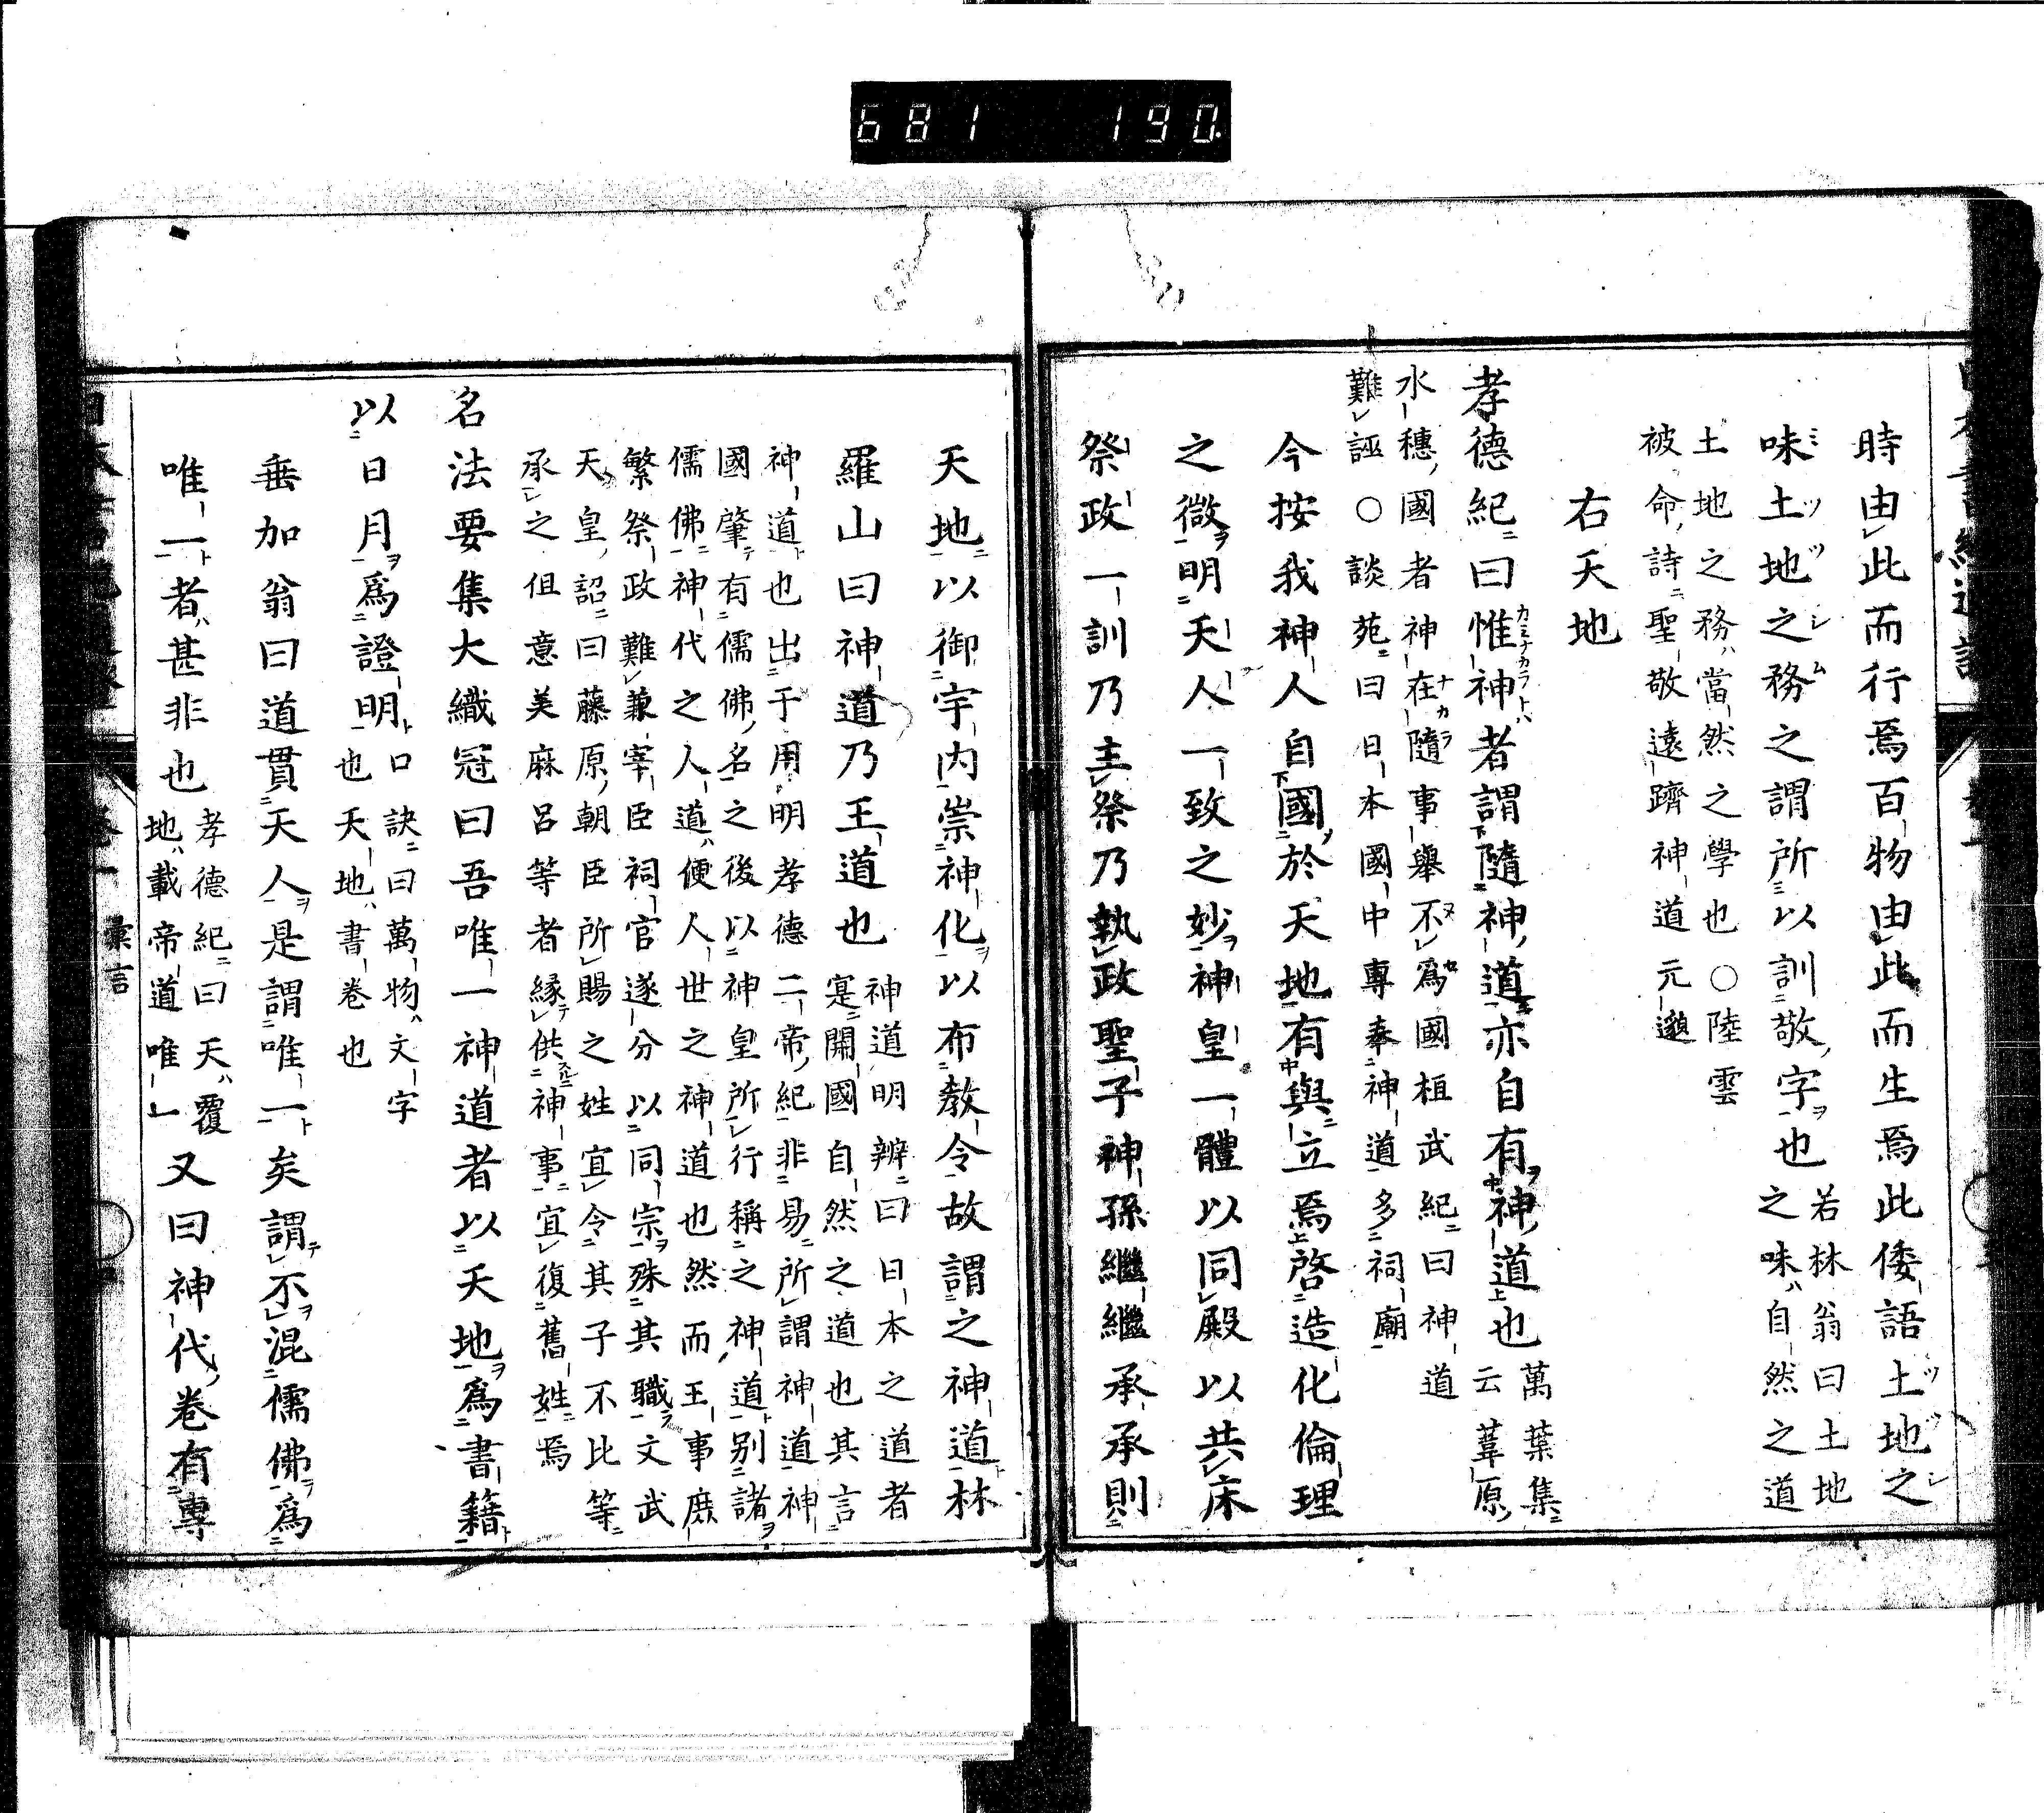 681 190.
時由此而行焉百物由此而生焉此倭語土地之
味土地之務之謂所以訓敬字也若林翁曰土地
之味自然之道
土地之務當然之學也○陸雲
被命詩聖敬遠躋神道元邈
右天地
孝德紀曰惟神者謂隨神道亦自有神道也萬葉集
云葦原
水穗國者神在隨事舉不爲國植武紀曰神道
難誣○談苑曰日本國中專奉神道多祠廟
今按我神人自國於天地有與立焉啓造化倫理
之微明天人一致之妙神皇一體以同殿以共床
祭政一訓乃主祭乃執政聖子神孫繼繼承承則
天地以御宇内崇神化以布教令故謂之神道林
羅山曰神道乃王道也神道明辨曰日本之道者
寔開國自然之道也其言
神道也出于用明孝德二帝紀非易所謂神道神
國肇有儒佛名之後以神皇所行稱之神道别諸
儒佛神代之人道便人世之神道也然而王事庶
繁祭政難兼宰臣祠官遂分以同宗殊其職文武
天皇詔曰藤原朝臣所賜之姓宜令其子不比等
承之但意美麻呂等者縁供神事宜復舊姓焉
名法要集大織冠曰吾唯一神道者以天地爲書籍
以日月爲證明口訣曰萬物文字
也天地書卷也
垂加翁曰道貫天人是謂唯一矣謂不混儒佛爲
唯一者甚非也孝德紀曰天覆
地載帝道唯一又曰神代卷有專
卷一 彙言